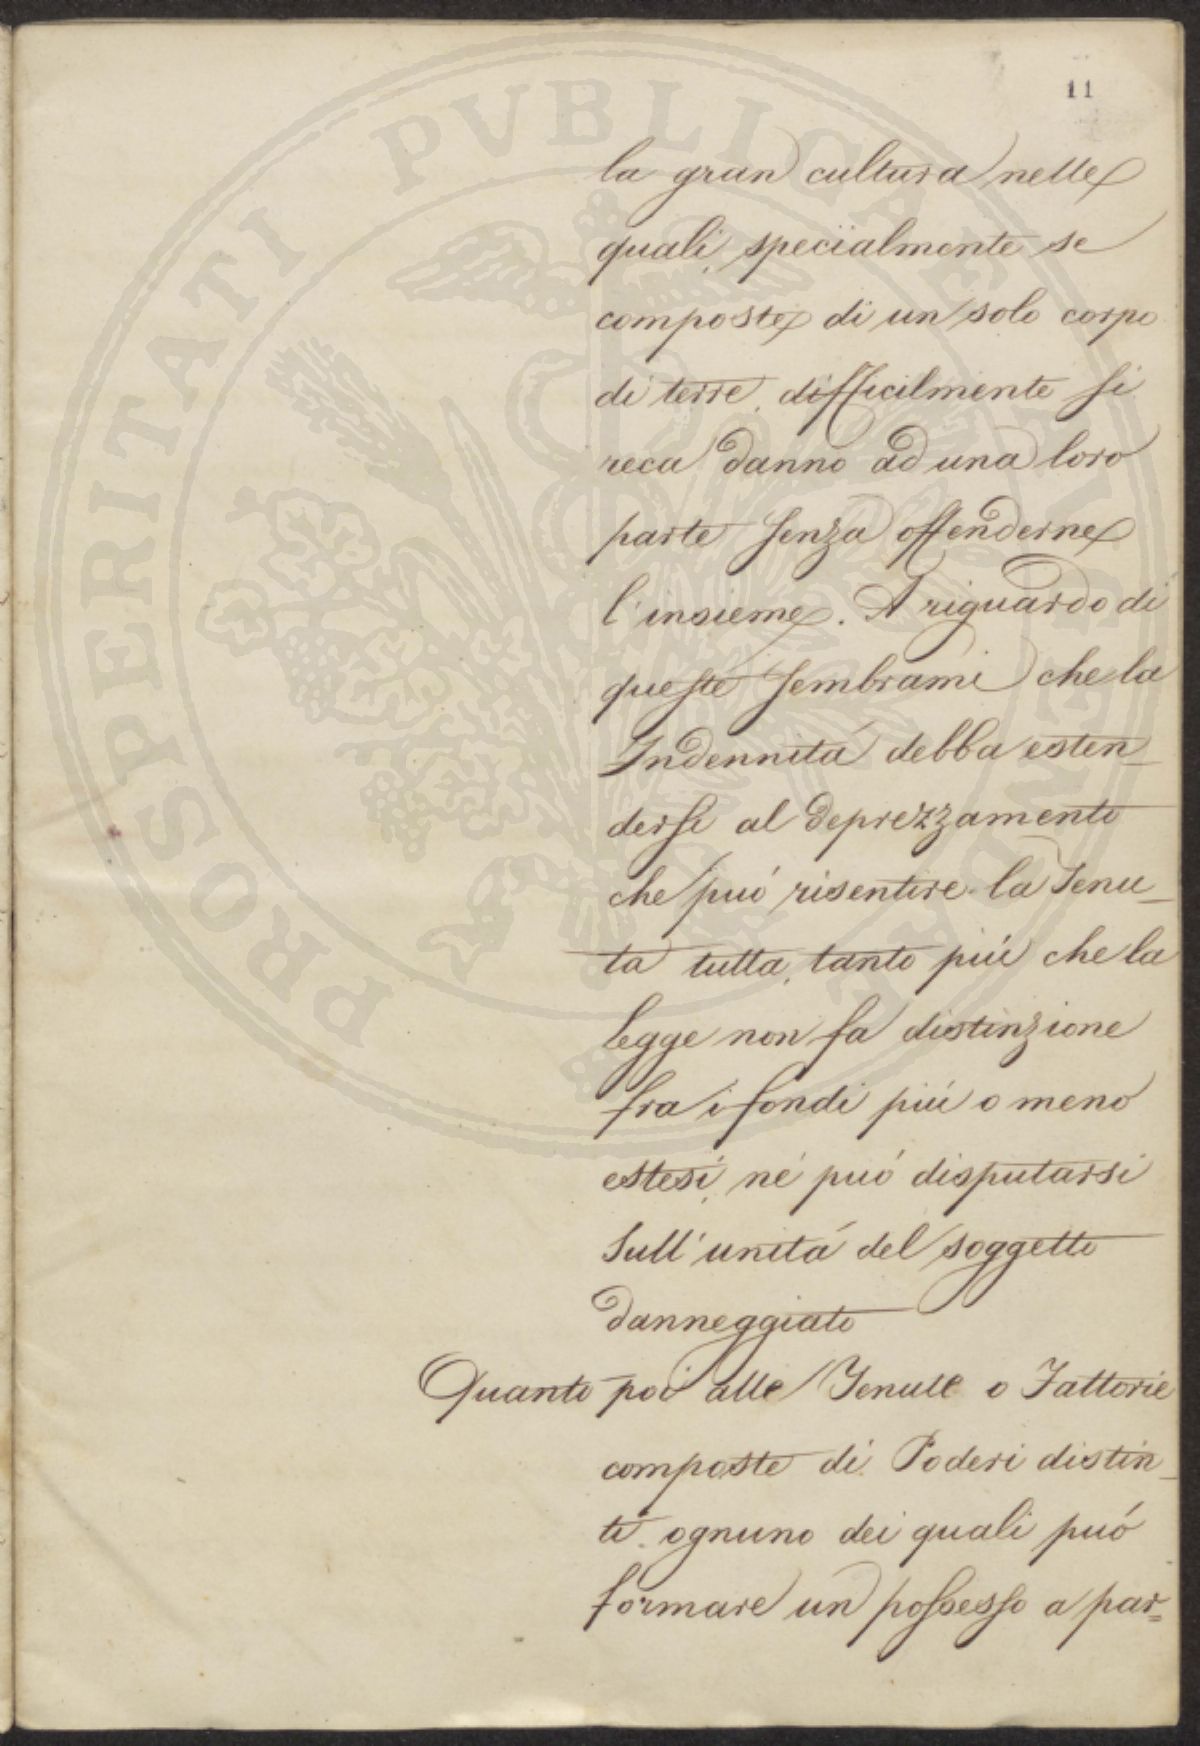 11
la gran cultura nelle
quali, specialmente se
composte di un solo corpo
di terre, difficilmente si
reca danno ad una loro
parte senza offenderne
l'insieme. A riguardo di
queste sembrami che la
Indennitá debba esten_
dersi al deprezzamento
che puó risentire la Tenu_
ta tutta, tanto piú che la
legge non fa distinzione
fra i fondi piú o meno
estesi, né puó disputarsi
sull'unitá del soggetto
danneggiato
Quanto poi alle Tenute o Fattorie
composte di Poderi distin_
ti, ognuno dei quali puó
formare un possesso a par=
PROSPERITATI PVBLICAE AVGENDAE